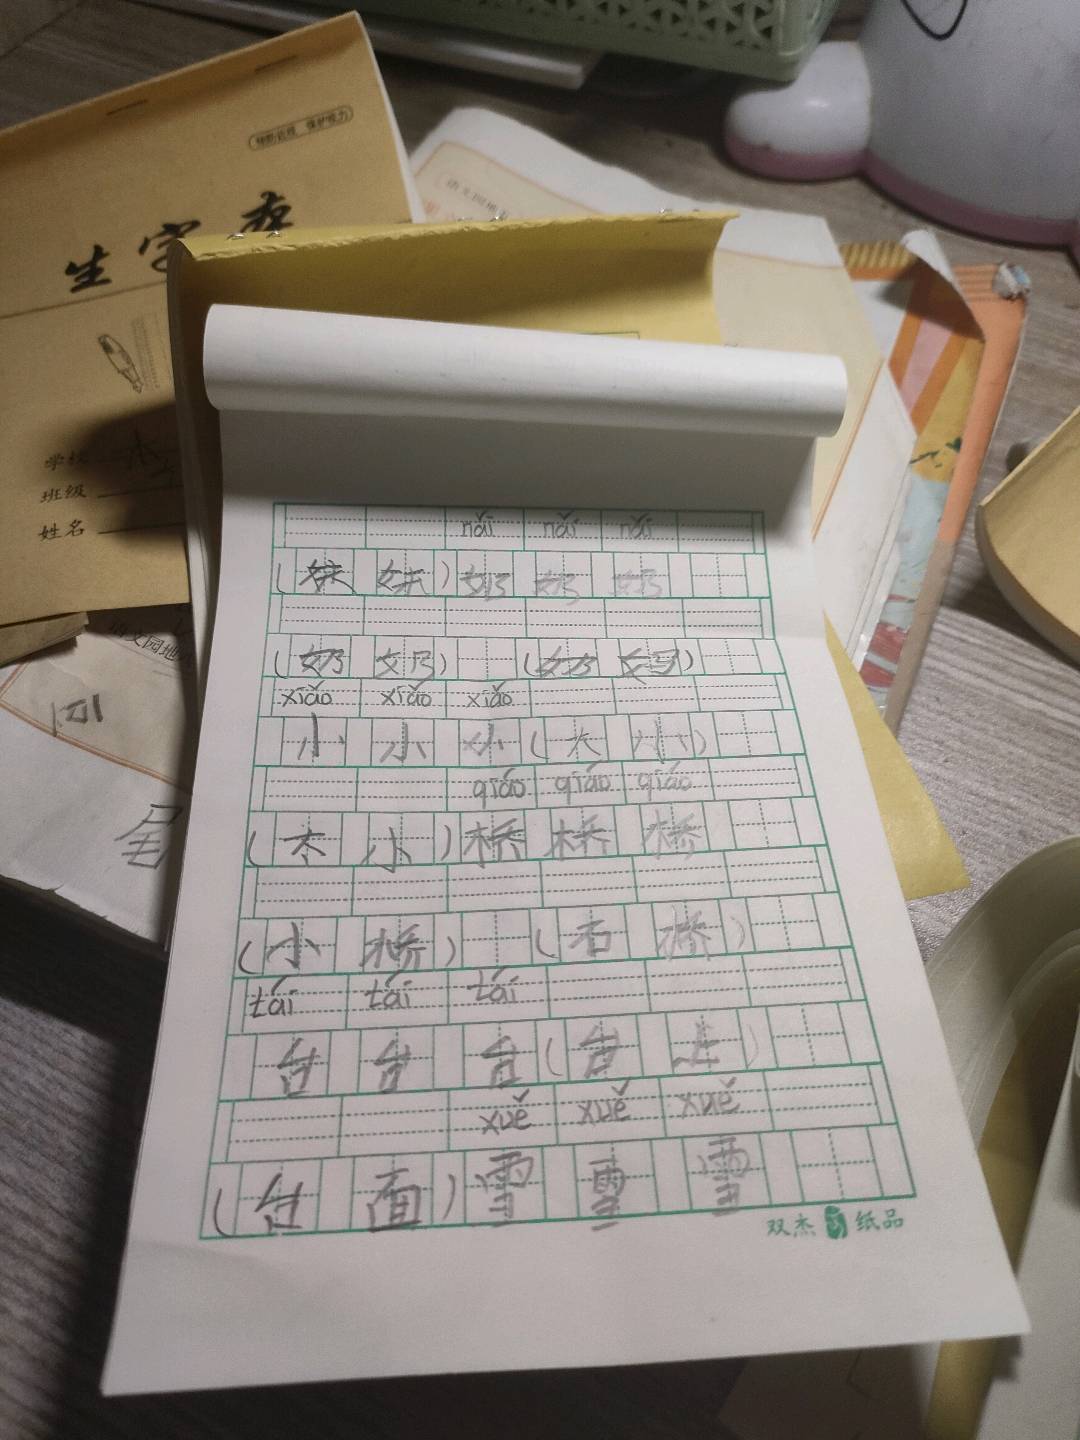 预防近视 保护视力
生字本
语文园地
学校
班级
姓名
语文园地
四
尾
nǎi nǎi nǎi
(妹 妹)奶 奶 奶
(奶 奶) (奶 妈)
xiǎo xiǎo xiǎo
小 小 小(大 小)
qiáo qiáo qiáo
(大 小)桥 桥 桥
(小 桥) (石 桥)
tái tái tái
台 台 台(台 上)
xuě xuě xuě
(台 面)雪 雪 雪
双杰 纸品